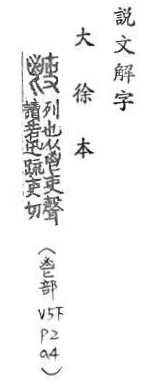 説文解字
大徐本
列也从鬯吏聲
讀若迅疏吏切
(鬯部 V5下 P2 a4)